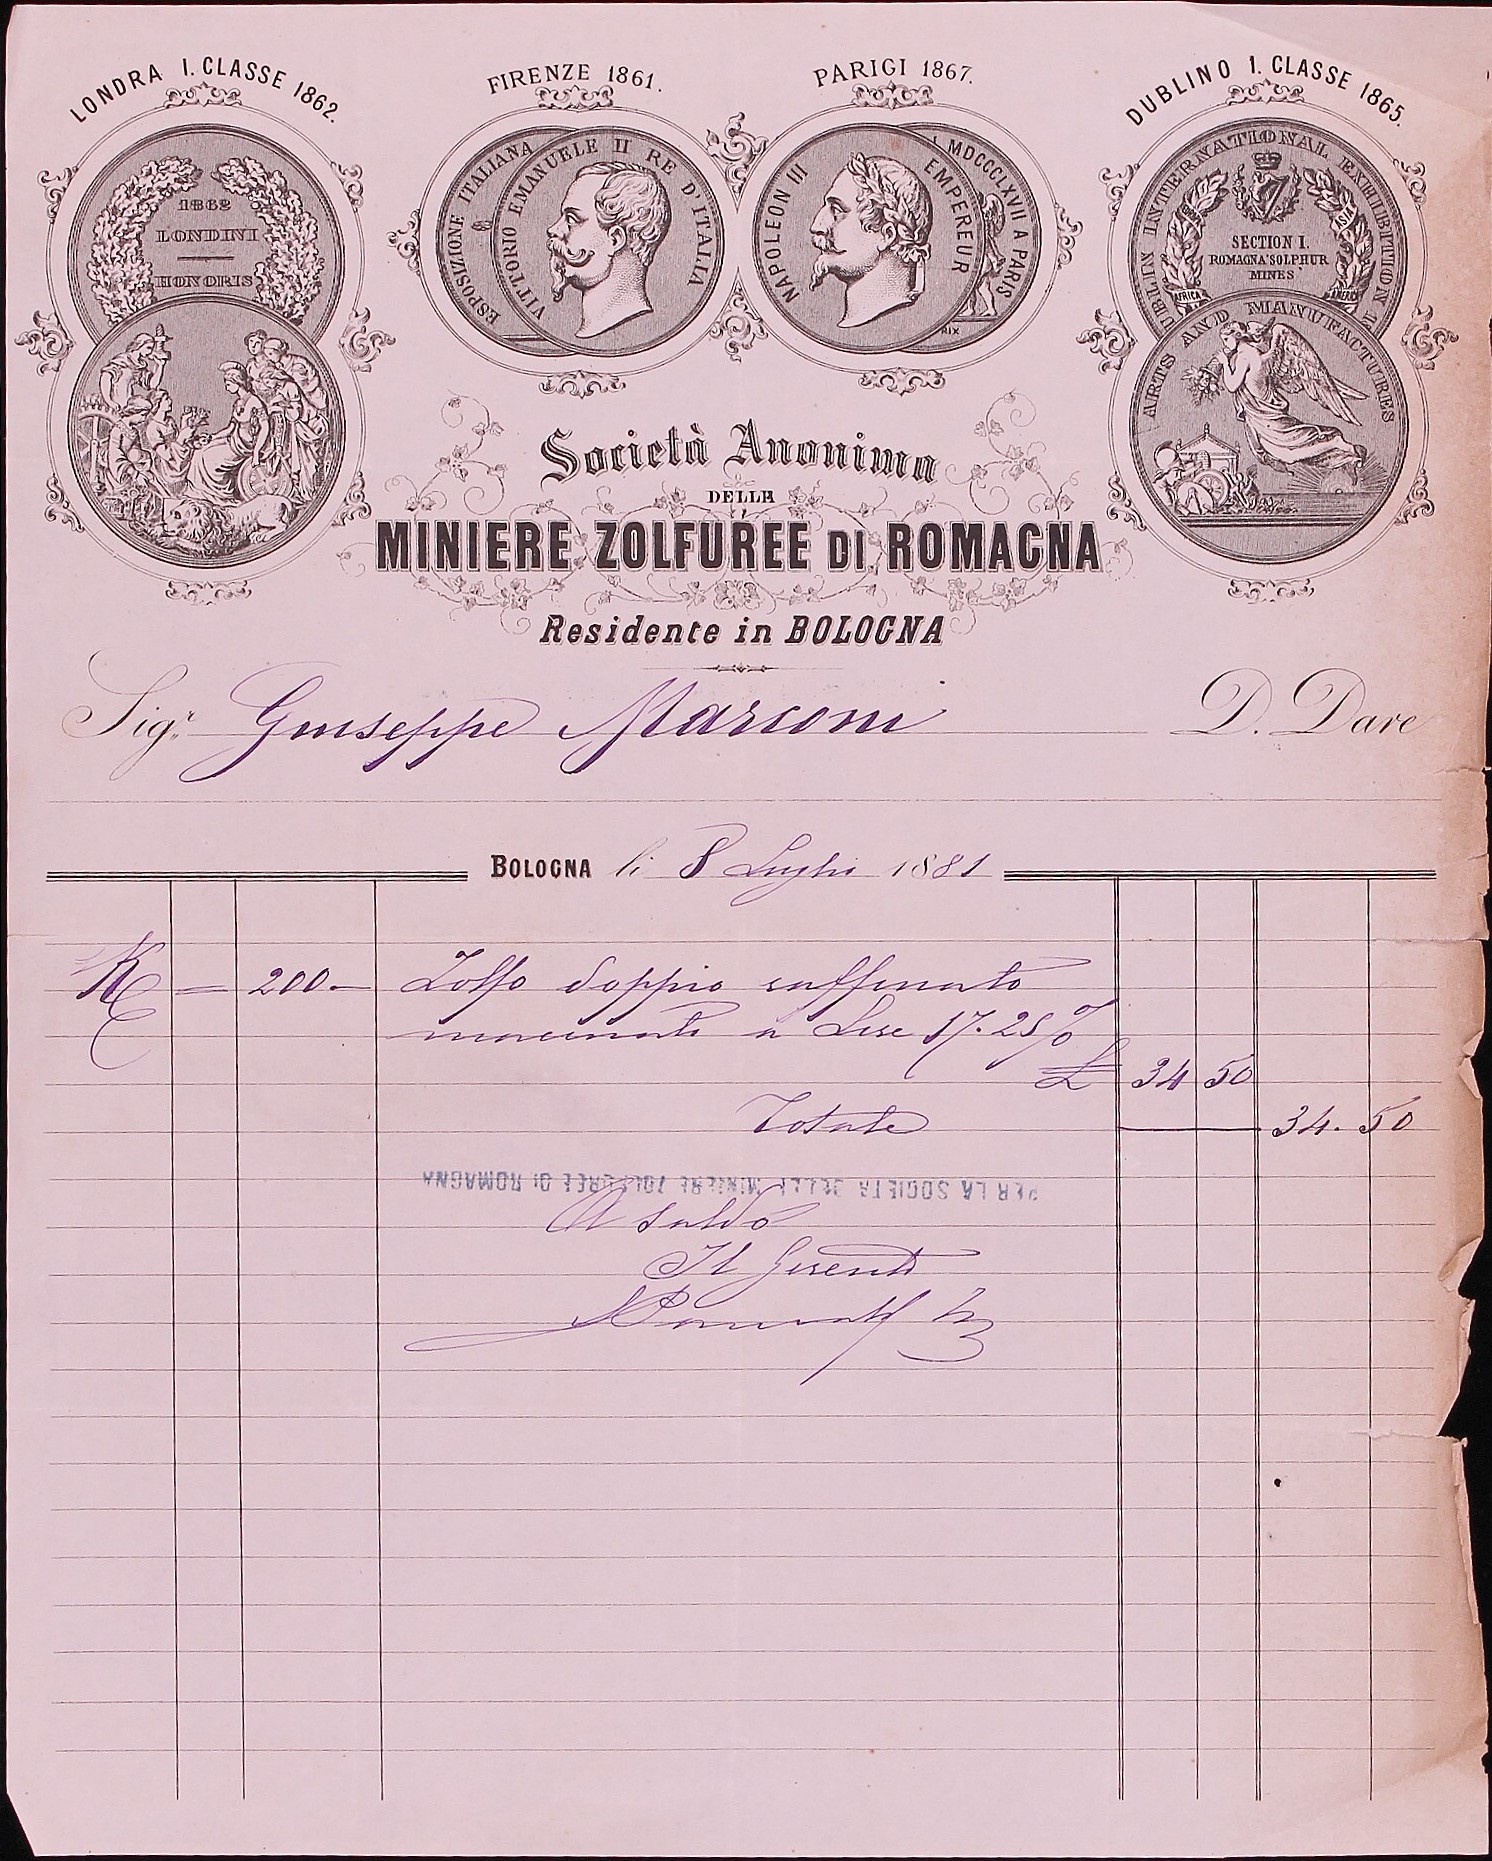 LONDRA I. CLASSE 1862.
FIRENZE 1861.
PARIGI 1867.
DUBLINO I. CLASSE 1865.
1862
LONDINI
HONORIS
ESPOSIZIONE ITALIANA
VITTORIO EMANUELE II RE D'ITALIA
NAPOLEON III EMPEREUR
MDCCCLXVII A PARIS
RIX
UBLIN INTERNATIONAL EXHIBITION 1
EUROPA
ASIA
SECTION I.
ROMAGNA SOLPHUR
MINES
AFRICA
AMERICA
ARTS AND MANUFACTURES
Società Anonima
DELLE
MINIERE ZOLFUREE DI ROMAGNA
Residente in BOLOGNA
Sigr. Giuseppe Marconi D. Dare
BOLOGNA li 8 Luglio 1881
K = 200 - Zolfo doppio raffinato
macinato a Lire 17.25 %
£ 34 50
Totale 34. 50
PER LA SOCIETA DELLE MINIERE ZOLFUREE DI ROMAGNA
A saldo
Il Gerente